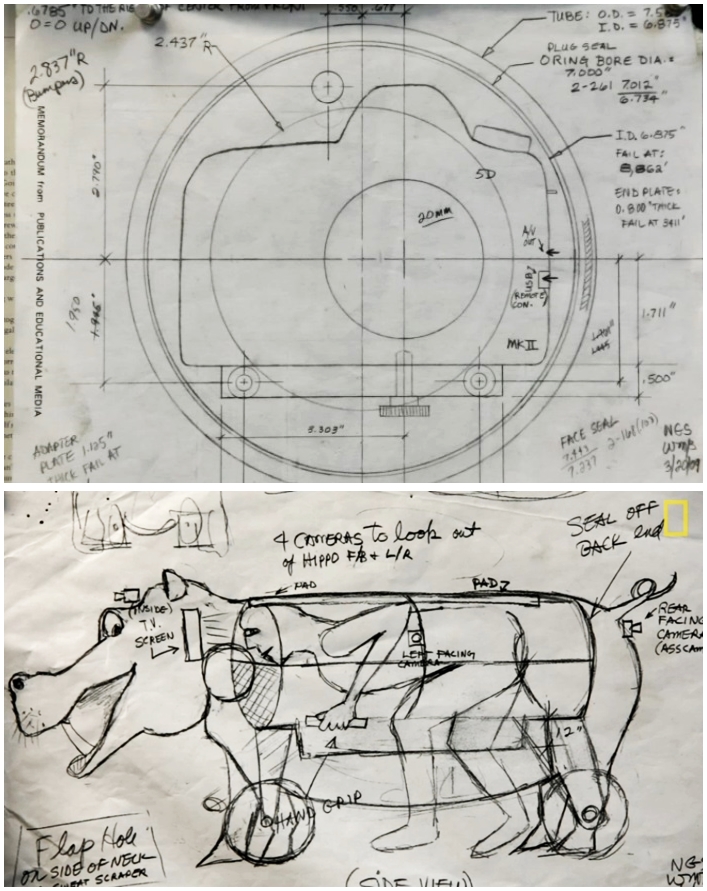 .6785" TO THE
CENTER FROM FRONT
0=0 UP/DN.
.550
.678
2.437"R
2.837"R
(Bumpers)
MEMORANDUM from PUBLICATIONS AND EDUCATIONAL MEDIA
TUBE: O.D. = 7.5
I.D. = 6.875"
PLUG SEAL
ORING BORE DIA. =
7.000"
2-261 7.012"
6.734"
I.D. 6.875"
FAIL AT:
8,862'
END PLATE:
0.800" THICK
FAIL AT 3411'
5D
20mm
A/V
OUT
USB?
(REMOTE)
CON.
MK II
1.711"
.500"
3.303"
ADAPTER
PLATE 1.125"
THICK FAIL AT
FACE SEAL
7.443
7.237
NGS
WM/S
3/20/09
4 CAMERAS to look out
of HIPPO F/B + L/R
SEAL OFF
BACK end
PAD
PAD
(INSIDE)
T.V.
SCREEN
LEFT FACING
CAMERA
REAR
FACING
CAMERA
(ASSCAM
12"
HAND GRIP
Flap Hole
ON SIDE OF NECK
SWEAT SCRAPER
(SIDE VIEW)
NGS